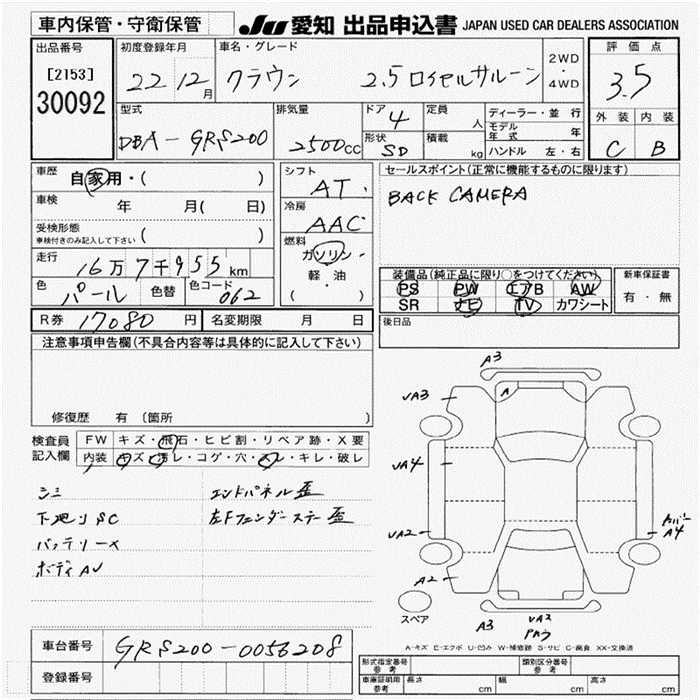 車内保管・守衛保管
JU 愛知 出品申込書 JAPAN USED CAR DEALERS ASSOCIATION
出品番号
[2153]
30092
初度登録年月
22 12月
車名・グレード
クラウン 2.5 ロイヤルサルーン
2WD
・
4WD
評価点
3.5
外装 内装
C B
型式
DBA-GRS200
排気量
2500cc
ドア 4
形状 SD
定員 人
積載 kg
ディーラー・並行
モデル年式 年
ハンドル 左・右
車歴 自家用・( )
車検 年 月( 日)
受検形態
車検付きのみ記入して下さい ( )
走行 16万7千955km
色 パール 色替 色コード 062
シフト
AT
冷房
AAC
燃料
ガソリン・
軽・油
( )
セールスポイント(正常に機能するものに限ります)
BACK CAMERA
装備品(純正品に限り○をつけてください)
PS PW エアB AW
SR ナビ TV カワシート
新車保証書
有・無
R券 17080円 名変期限 月 日
後日品
注意事項申告欄(不具合内容等は具体的に記入して下さい)
修復歴 有 (箇所 )
検査員記入欄
FW キズ・飛石・ヒビ割・リペア跡・X要
内装 キズ・汚レ・コゲ・穴・スレ・キレ・破レ
シミ
下廻りSC
バッテリーX
ボディAU
エンドパネル歪
左Fフェンダーステー歪
A3
UA3
A
UA4
UA2
A2
カバー
A4
A3
UA2
スペア
A-キズ E-エクボ U-凹み W-補修跡 S-サビ C-腐食 XX-交換済
車台番号 GRS200-0056208
登録番号
形式指定番号
参考
類別区分番号
参考
車庫証明用
参考
長さ cm
幅 cm
高さ cm